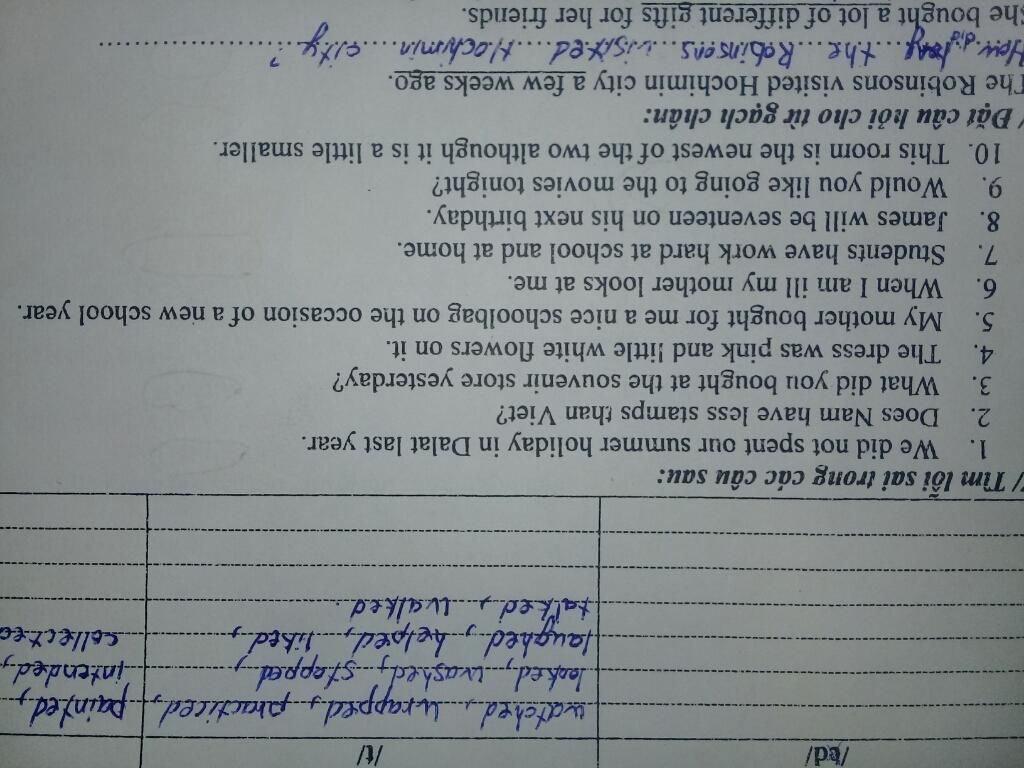 /ed/ /t/
watched, wrapped, practiced, painted,
looked, washed, stopped, intended,
laughed, helped, liked, collected
talked, walked.
/ Tìm lỗi sai trong các câu sau:
1. We did not spent our summer holiday in Dalat last year.
2. Does Nam have less stamps than Viet?
3. What did you bought at the souvenir store yesterday?
4. The dress was pink and little white flowers on it.
5. My mother bought for me a nice schoolbag on the occasion of a new school year.
6. When I am ill my mother looks at me.
7. Students have work hard at school and at home.
8. James will be seventeen on his next birthday.
9. Would you like going to the movies tonight?
10. This room is the newest of the two although it is a little smaller.
/ Đặt câu hỏi cho từ gạch chân:
The Robinsons visited Hochimin city a few weeks ago.
How did the Robinsons visited Hochimin city?
She bought a lot of different gifts for her friends.